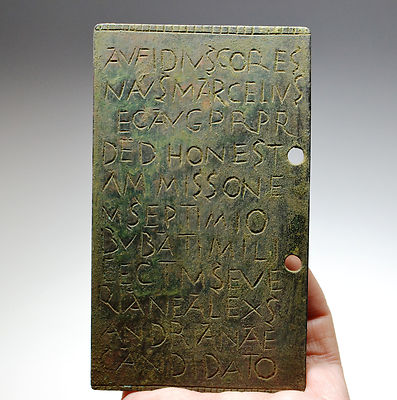 AVFIDIVSCORES
NAVSMARCELVS
LEGAVGPRPR
DEDHONEST
AMMISSONE
MSEPTIMIO
BVBATIMILI
LEGIMSEVE
RIANEALEXS
ANDRANAE
CANDIDATO